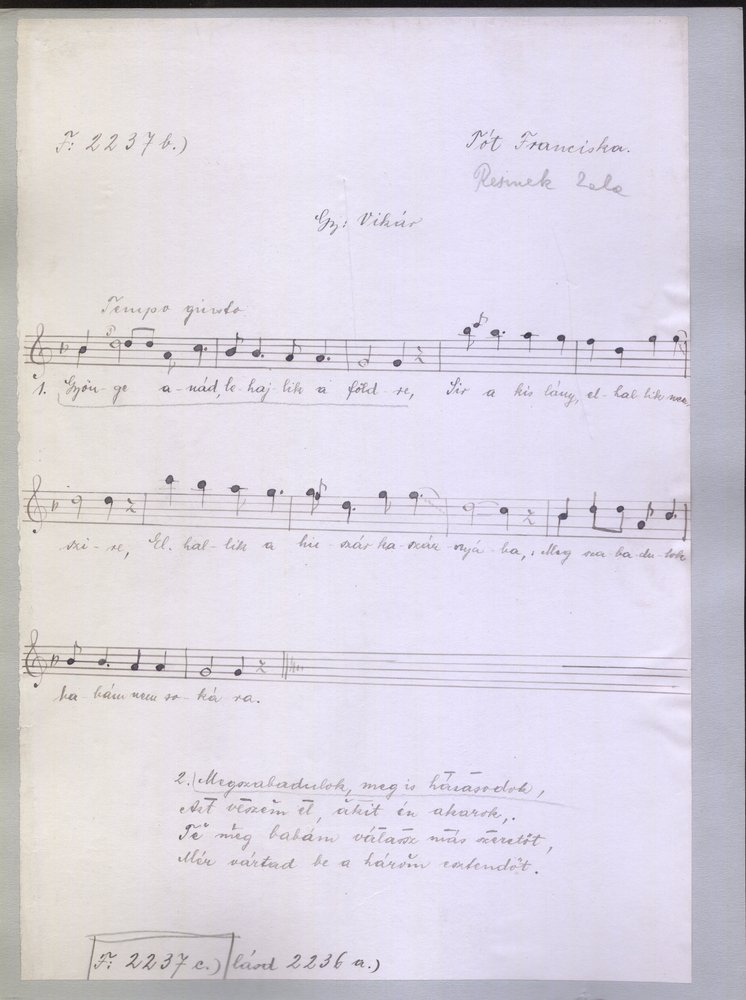 F: 2237 b.)
Tót Franciska.
Resinek Zala
Gy: Vikár
Tempo giusto
1. Gyön-ge a-nád, le-haj-lik a föld-re, Sir a kis lány, el-hal-lik mesz
szi-re, El-hal-lik a hu-szár ka-szár-nyá-ba, Meg sza-ba-du-lok
ba-bám nem so-ká ra.
2. Megszabadulok, meg is házasodok,
Azt vëszëm el, akit én akarok,
Të mëg babám válassz más szeretőt,
Mér vártad be a három esztendőt.
F: 2237 c.) lásd 2236 a.)